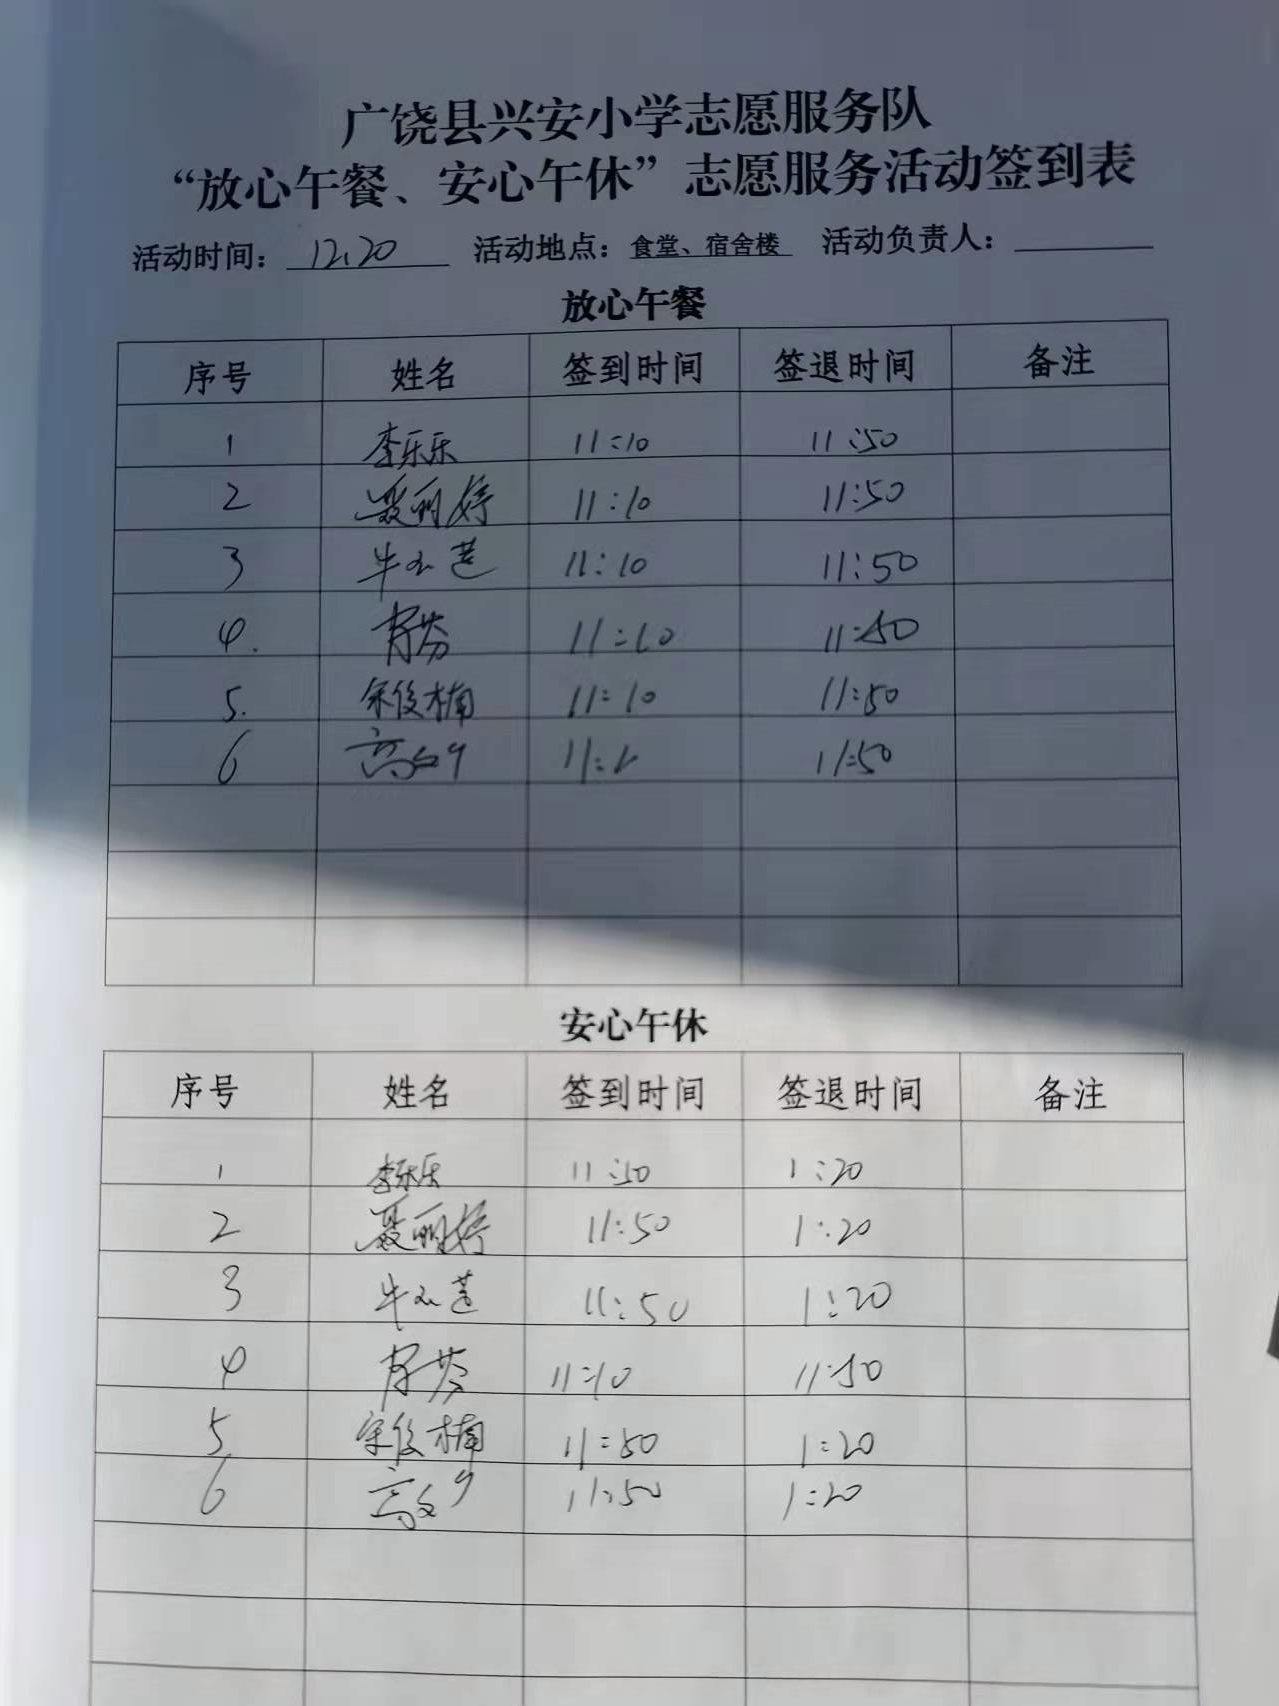 广饶县兴安小学志愿服务队
“放心午餐、安心午休”志愿服务活动签到表
活动时间：12.20 活动地点：食堂、宿舍楼 活动负责人：
放心午餐
序号 姓名 签到时间 签退时间 备注
1 李乐乐 11:10 11:50
2 聂丽婷 11:10 11:50
3 牛 莲 11:10 11:50
4. 芬 11:10 11:50
5. 宋俊楠 11:10 11:50
6 高 11:1 11:50
安心午休
序号 姓名 签到时间 签退时间 备注
1 李乐乐 11:50 1:20
2 聂丽婷 11:50 1:20
3 牛 莲 11:50 1:20
4 芬 11:10 11:50
5 宋俊楠 11:50 1:20
6 高 11:50 1:20